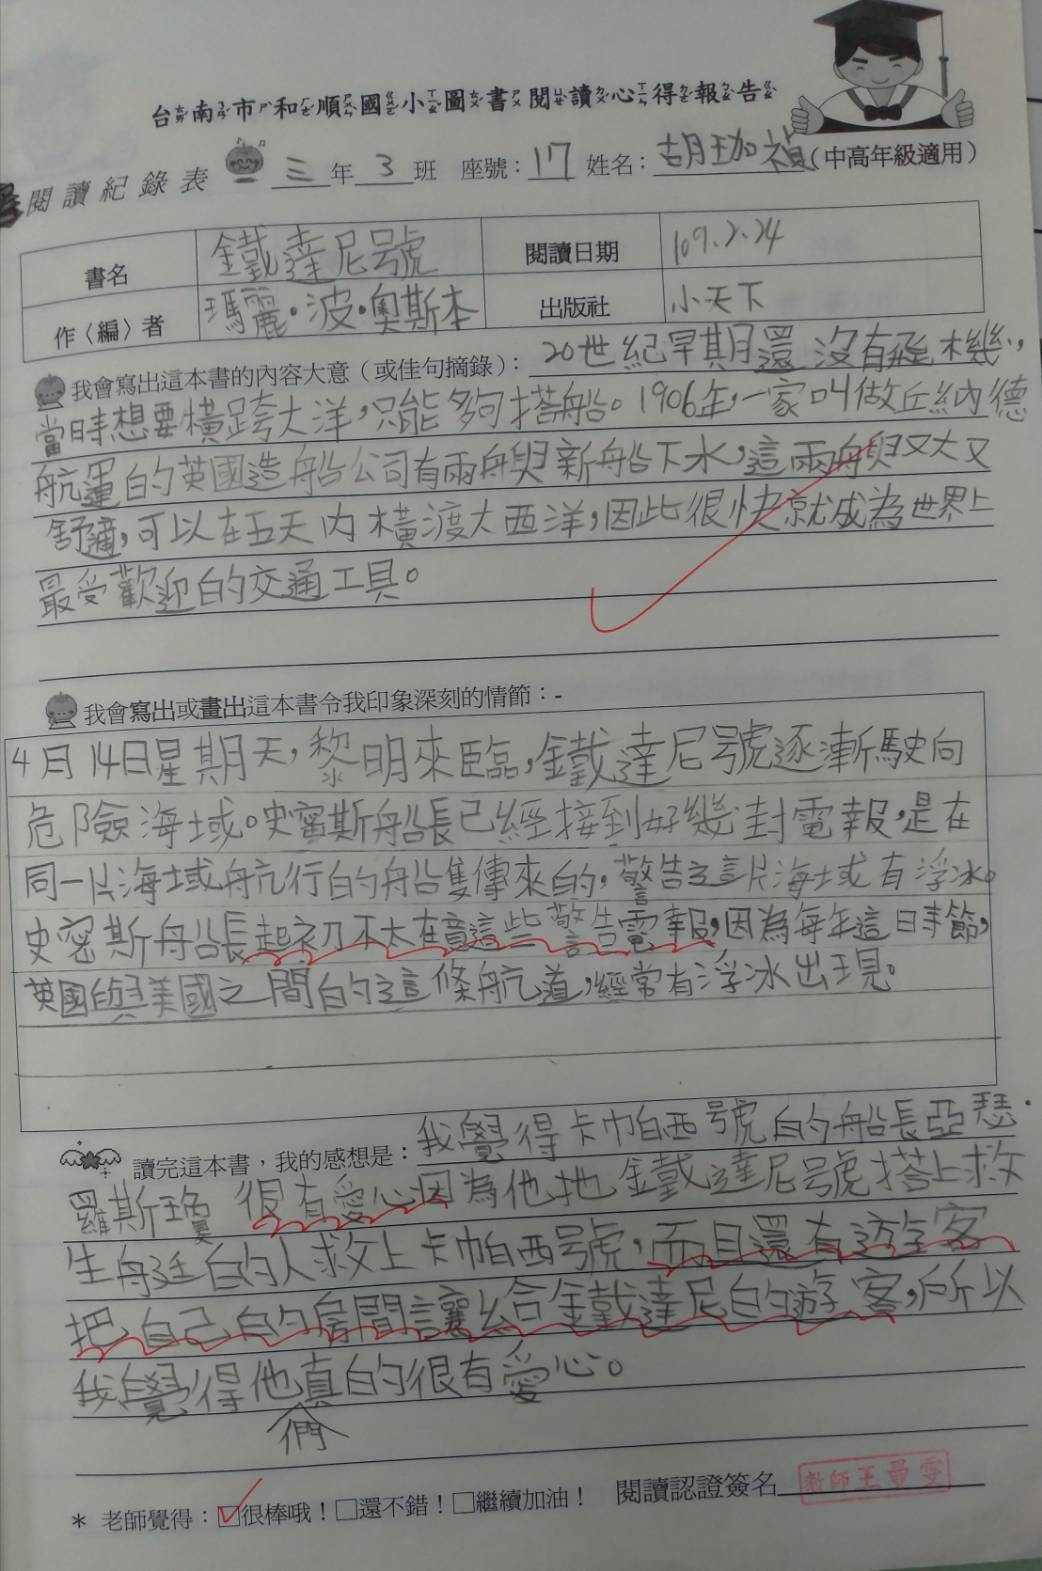 台南市和順國小圖書閱讀心得報告
閱讀紀錄表 三年3班 座號：17 姓名：胡珈禎(中高年級適用)
書名 鐵達尼號 閱讀日期 109.2.24
作〈編〉者 瑪麗・波・奧斯本 出版社 小天下
我會寫出這本書的內容大意（或佳句摘錄）：20世紀早期還沒有飛機，
當時想要橫跨大洋，只能夠搭船。1906年，一家叫做丘納德
航運的英國造船公司有兩艘新船下水，這兩艘又大又
舒適，可以在五天內橫渡大西洋，因此很快就成為世界上
最受歡迎的交通工具。
我會寫出或畫出這本書令我印象深刻的情節：-
4月14日星期天，黎明來臨，鐵達尼號逐漸駛向
危險海域。史密斯船長已經接到好幾封電報，是在
同一片海域航行的船隻傳來的，警告這片海域有浮冰。
史密斯船長起初不太在意這些警告電報，因為每年這時節，
英國與美國之間的這條航道，經常有浮冰出現。
讀完這本書，我的感想是：我覺得卡帕西號的船長亞瑟・
羅斯瓊 很有愛心因為他把鐵達尼號搭上救
生艇的人救上卡帕西號，而且還有遊客
把自己的房間讓給鐵達尼的遊客，所以
我覺得他真的很有愛心。
們
＊ 老師覺得：☑很棒哦！□還不錯！□繼續加油！ 閱讀認證簽名 教師王曼雯